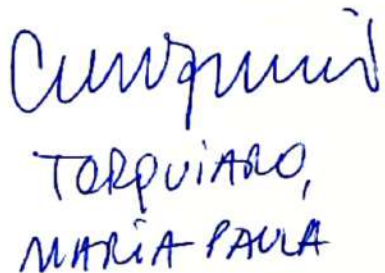 TORQUIARO,
MARÍA PAULA